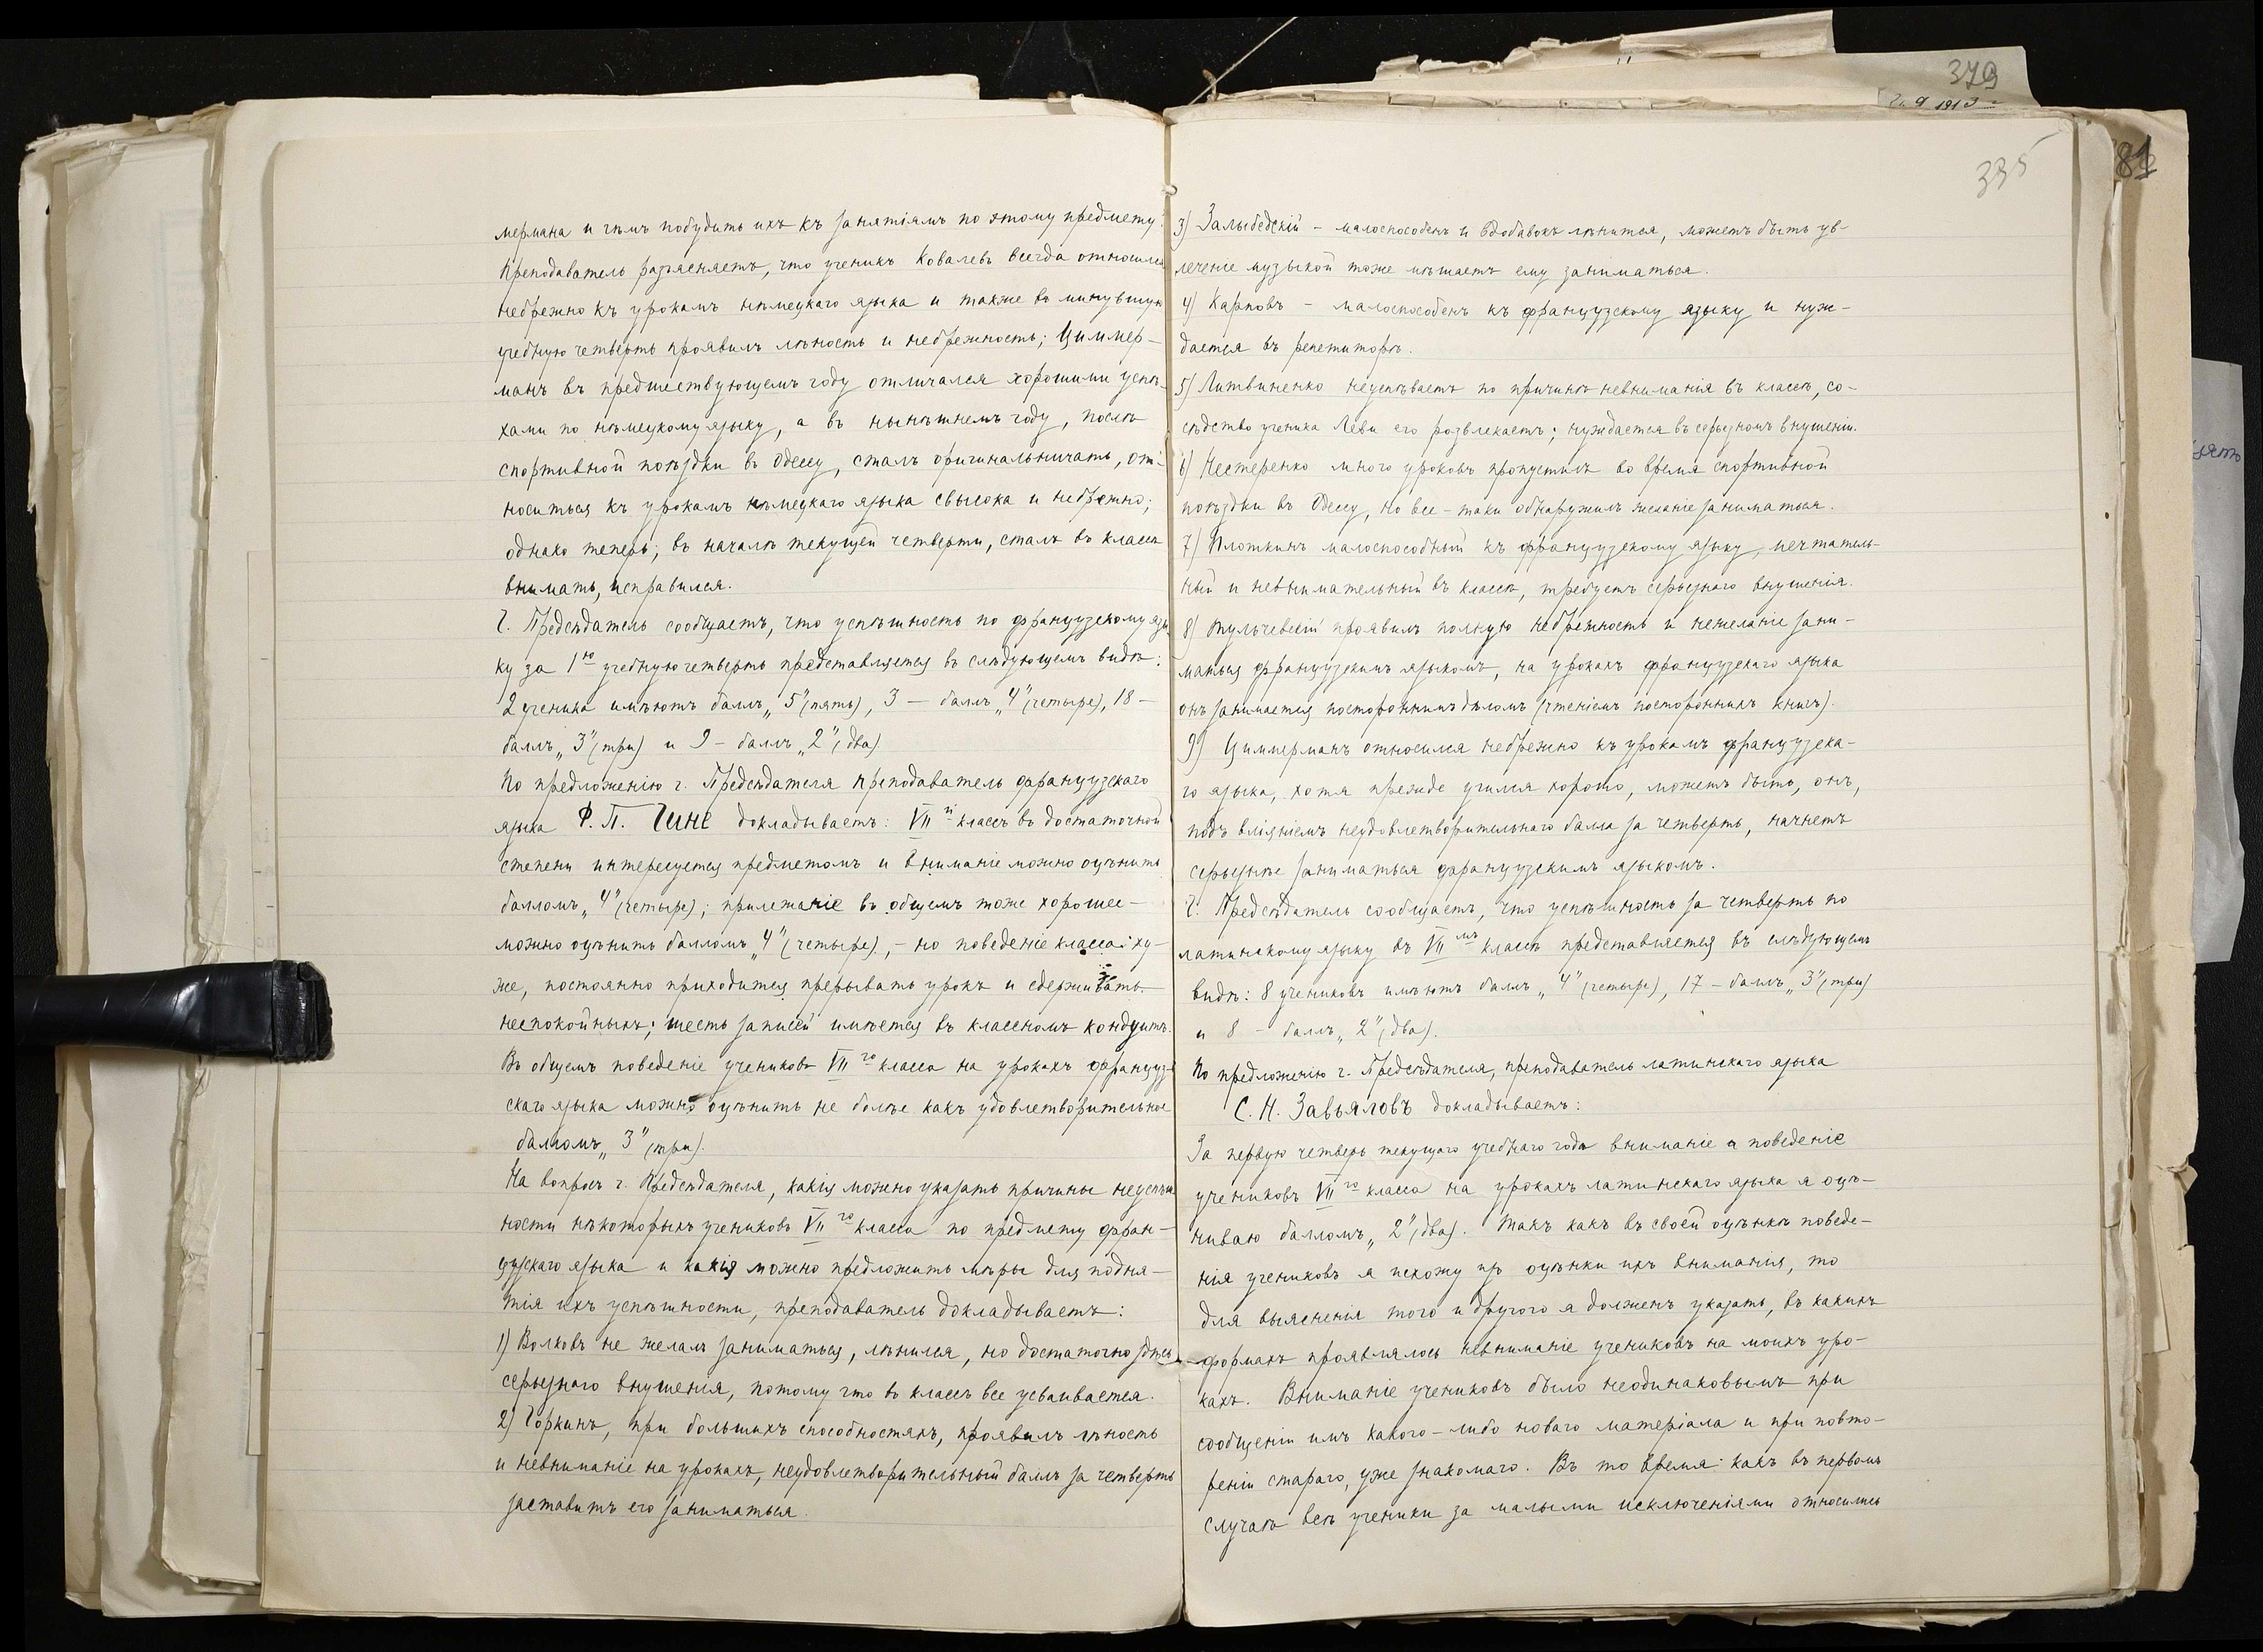 мермана и чѣмъ побудить ихъ къ занятіямъ по этому предмету:
преподаватель разъясняетъ, что ученикъ Ковалевъ всегда относился
небрежно къ урокамъ нѣмецкаго языка и также въ минувшую
учебную четверть проявилъ лѣность и небрежность; Циммер-
манъ въ предшествующемъ году отличался хорошими успѣ-
хами по нѣмецкому языку, а въ нынѣшнемъ году, послѣ
спортивной поѣздки въ Одессу, сталъ оригинальничать, от-
носиться къ урокамъ нѣмецкаго языка свысока и небрежно;
однако теперь, въ началѣ текущей четверти, сталъ въ классѣ
внимать, исправился.
Г. Предсѣдатель сообщаетъ, что успѣшность по французскому язы
ку за 1ю учебную четверть представляется въ слѣдующемъ видѣ:
2 ученика имѣютъ баллъ „5" (пять), 3 — баллъ „4" (четыре), 18 —
баллъ „3" (три) и 9 – баллъ „2" (два)
По предложенію г. Предсѣдателя преподаватель французскаго
языка Ф. П. Гине докладываетъ: VIIй классъ въ достаточной
степени интересуется предметомъ и вниманіе можно оцѣнить
балломъ „4" (четыре); прилежаніе въ общемъ тоже хорошее –
можно оцѣнить балломъ „4" (четыре), – но поведеніе класса ху-
же, постоянно приходится прерывать урокъ и сдерживать
неспокойныхъ; шесть записей имѣется въ классномъ кондуитѣ.
Въ общемъ поведеніе учениковъ VIIго класса на урокахъ француз-
скаго языка можно оцѣнить не болѣе какъ удовлетворительное
балломъ „3" (три).
На вопросъ г. Предсѣдателя, какія можно указать причины неуспѣш
ности нѣкоторыхъ учениковъ VIIго класса по предмету фран-
цузскаго языка и какія можно предложить мѣры для подня-
тія ихъ успѣшности, преподаватель докладываетъ:
1) Волковъ не желалъ заниматься, лѣнился, но достаточно здѣсь
серьезнаго внушенія, потому что въ классѣ все усваивается.
2) Горкинъ, при большихъ способностяхъ, проявилъ лѣность
и невниманіе на урокахъ, неудовлетворительный баллъ за четверть
заставитъ его заниматься.
379
9 1913
335
81
3) Залыбедскій – малоспособенъ и вдобавокъ лѣнится, можетъ быть ув-
леченіе музыкой тоже мѣшаетъ ему заниматься.
4) Карповъ – малоспособенъ къ французскому языку и нуж-
дается въ репетиторѣ.
5) Литвиненко неуспѣваетъ по причинѣ невниманія въ классѣ, со-
сѣдство ученика Леви его развлекаетъ; нуждается въ серьезномъ внушеніи.
6) Нестеренко много уроковъ пропустилъ во время спортивной
поѣздки въ Одессу, но все-таки обнаружилъ желаніе заниматься.
7) Плоткинъ малоспособный къ французскому языку, мечтатель-
ный и невнимательный въ классѣ, требуетъ серьезнаго внушенія.
8) Тульчевскій проявилъ полную небрежность и нежеланіе зани-
маться французскимъ языкомъ, на урокахъ французскаго языка
онъ занимается постороннимъ дѣломъ (чтеніемъ постороннихъ книгъ).
9) Циммерманъ относился небрежно къ урокамъ французска-
го языка, хотя прежде учился хорошо, можетъ быть, онъ,
подъ вліяніемъ неудовлетворительнаго балла за четверть, начнетъ
серьезнѣе заниматься французскимъ языкомъ.
Г. Предсѣдатель сообщаетъ, что успѣшность за четверть по
латинскому языку въ VIIмъ классѣ представляется въ слѣдующемъ
видѣ: 8 учениковъ имѣютъ баллъ „4" (четыре), 17 – баллъ „3" (три)
и 8 – баллъ „2" (два).
По предложенію г. Предсѣдателя, преподаватель латинскаго языка
С. Н. Завьяловъ докладываетъ:
За первую четверь текущаго учебнаго года вниманіе и поведеніе
учениковъ VIIго класса на урокахъ латинскаго языка я оцѣ-
ниваю балломъ „2" (два). Такъ какъ въ своей оцѣнкѣ поведе-
нія учениковъ я исхожу из оцѣнки ихъ вниманія, то
для выясненія того и другого я долженъ указать, въ какихъ
формахъ проявлялось невниманіе учениковъ на моихъ уро-
кахъ. Вниманіе учениковъ было неодинаковымъ при
сообщеніи имъ какого-либо новаго матеріала и при повто-
реніи стараго, уже знакомаго. Въ то время какъ въ первомъ
случаѣ всѣ ученики за малыми исключеніями относились